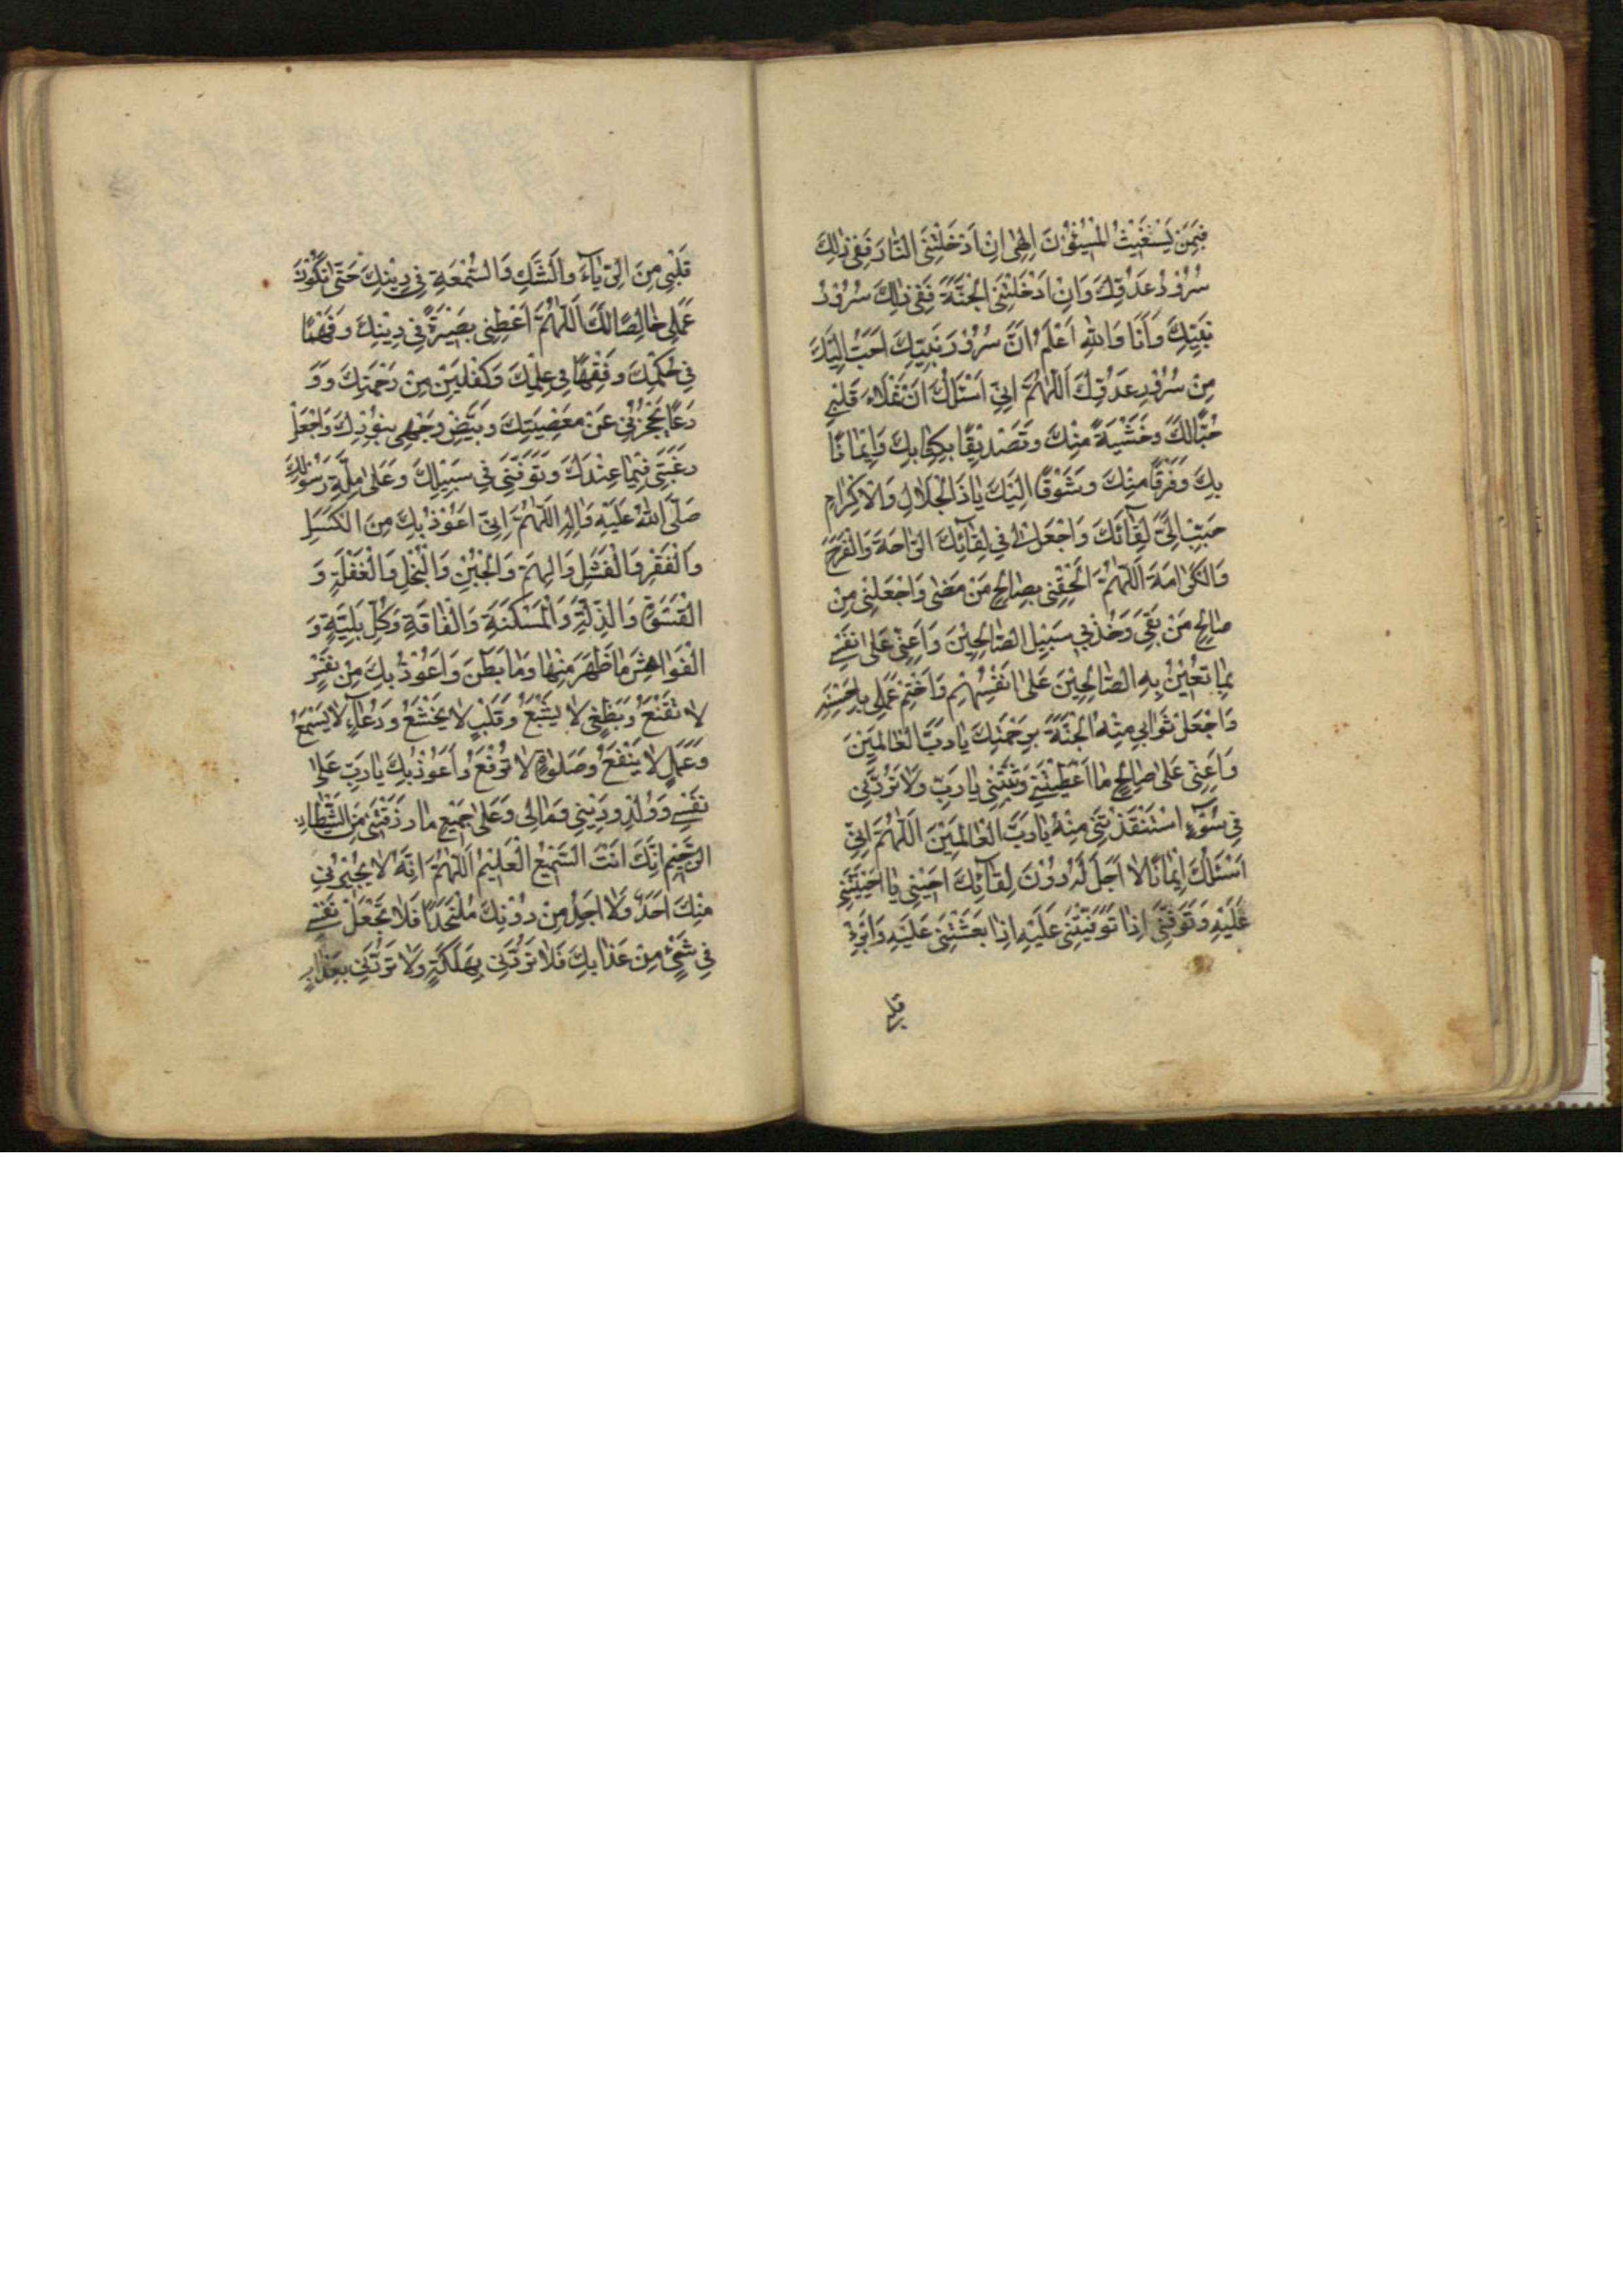 فَبِمَنْ يَسْتَغيثُ الْمُسيئُونَ اِلٰهى اِنْ اَدْخَلْتَنِى النّارَ فَفى ذٰلِكَ
سُرُورُ عَدُوِّكَ وَاِنْ اَدْخَلْتَنِى الْجَنَّةَ فَفى ذٰلِكَ سُرُورُ
نَبِيِّكَ وَاَنَا وَاللّٰهِ اَعْلَمُ اَنَّ سُرُورَ نَبِيِّكَ اَحَبُّ اِلَيْكَ
مِنْ سُرُورِ عَدُوِّكَ اَللّٰهُمَّ اِنّى اَسْئَلُكَ اَنْ تَمْلَاَ قَلْبى
حُبًّا لَكَ وَخَشْيَةً مِنْكَ وَتَصْديقًا بِكِتابِكَ وَايمانًا
بِكَ وَفَرَقًا مِنْكَ وَشَوْقًا اِلَيْكَ يا ذَا الْجَلالِ وَالْاِكْرامِ
حَبِّبْ اِلَىَّ لِقآئَكَ وَاجْعَلْ لى فى لِقآئِكَ الرّاحَةَ وَالْفَرَجَ
وَالْكَرامَةَ اَللّٰهُمَّ اَلْحِقْنى بِصالِحِ مَنْ مَضى وَاجْعَلْنى مِنْ
صالِحِ مَنْ بَقِىَ وَخُذْ بى سَبيلَ الصّالِحينَ وَاَعِنّى عَلى نَفْسى
بِما تُعينُ بِهِ الصّالِحينَ عَلى اَنْفُسِهِمْ وَاخْتِمْ عَمَلى بِاَحْسَنِهِ
وَاجْعَلْ ثَوابى مِنْهُ الْجَنَّةَ بِرَحْمَتِكَ يا رَبَّ الْعالَمينَ
وَاَعِنّى عَلى صالِحِ ما اَعْطَيْتَنى وَثَبِّتْنى يا رَبِّ وَلا تَرُدَّنى
فى سُوٓءٍ اسْتَنْقَذْتَنى مِنْهُ يا رَبَّ الْعالَمينَ اَللّٰهُمَّ اِنّى
اَسْئَلُكَ ايمانًا لا اَجَلَ لَهُ دُونَ لِقآئِكَ اَحْيِنى ما اَحْيَيْتَنى
عَلَيْهِ وَتَوَفَّنى اِذا تَوَفَّيْتَنى عَلَيْهِ اِذا بَعَثْتَنى عَلَيْهِ وَاَبْرِئْ
قَلْبى مِنَ الرِّيآءِ وَالشَّكِّ وَالسُّمْعَةِ فى دينِكَ حَتّى يَكُونَ
عَمَلى خالِصًا لَكَ اَللّٰهُمَّ اَعْطِنى بَصيرَةً فى دينِكَ وَفَهْمًا
فى حُكْمِكَ وَفِقْهًا فى عِلْمِكَ وَكِفْلَيْنِ مِنْ رَحْمَتِكَ وَوَ
رَعًا يَحْجُزُنى عَنْ مَعْصِيَتِكَ وَبَيِّضْ وَجْهى بِنُورِكَ وَاجْعَلْ
رَغْبَتى فيما عِنْدَكَ وَتَوَفَّنى فى سَبيلِكَ وَعَلى مِلَّةِ رَسُولِكَ
صَلَّى اللّٰهُ عَلَيْهِ وَاٰلِهِ اَللّٰهُمَّ اِنّى اَعُوذُ بِكَ مِنَ الْكَسَلِ
وَالْفَقْرِ وَالْفَشَلِ وَالْهَمِّ وَالْجُبْنِ وَالْبُخْلِ وَالْغَفْلَةِ وَ
الْقَسْوَةِ وَالذِّلَّةِ وَالْمَسْكَنَةِ وَالْفاقَةِ وَكُلِّ بَلِيَّةٍ وَ
الْفَواحِشَ ما ظَهَرَ مِنْها وَما بَطَنَ وَاَعُوذُ بِكَ مِنْ نَفْسٍ
لا تَقْنَعُ وَبَطْنٍ لا يَشْبَعُ وَقَلْبٍ لا يَخْشَعُ وَدُعآءٍ لا يُسْمَعُ
وَعَمَلٍ لا يَنْفَعُ وَصَلوةٍ لا تُرْفَعُ وَاَعُوذُ بِكَ يا رَبِّ عَلى
نَفْسى وَوُلْدى وَدينى وَمالى وَعَلى جَميعِ ما رَزَقْتَنى مِنَ الشَّيْطانِ
الرَّجيمِ اِنَّكَ اَنْتَ السَّميعُ الْعَليمُ اَللّٰهُمَّ اِنَّهُ لا يُجيرُنى
مِنْكَ اَحَدٌ وَلا اَجِدُ مِنْ دُونِكَ مُلْتَحَدًا فَلا تَجْعَلْ نَفْسى
فى شَىْءٍ مِنْ عَذابِكَ فَلا تَرُدَّنى بِهَلَكَةٍ وَلا تَرُدَّنى بِعَذابٍ